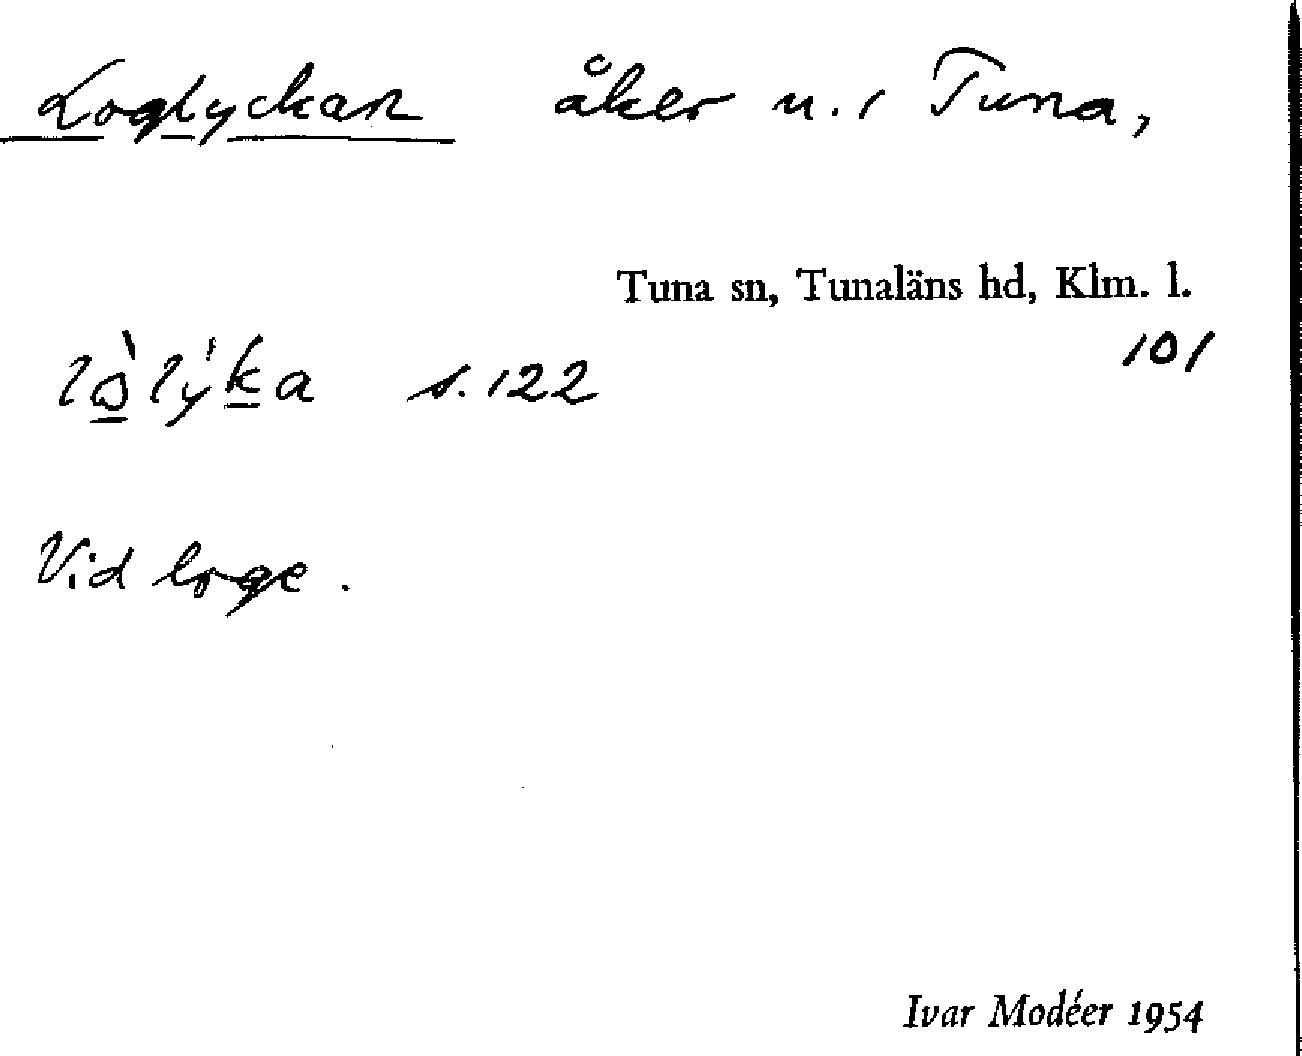 Loglyckan åker n. 1 Tuna,
Tuna sn, Tunaläns hd, Klm. l.
101
s. 122
Vid loge.
Ivar Modéer 1954